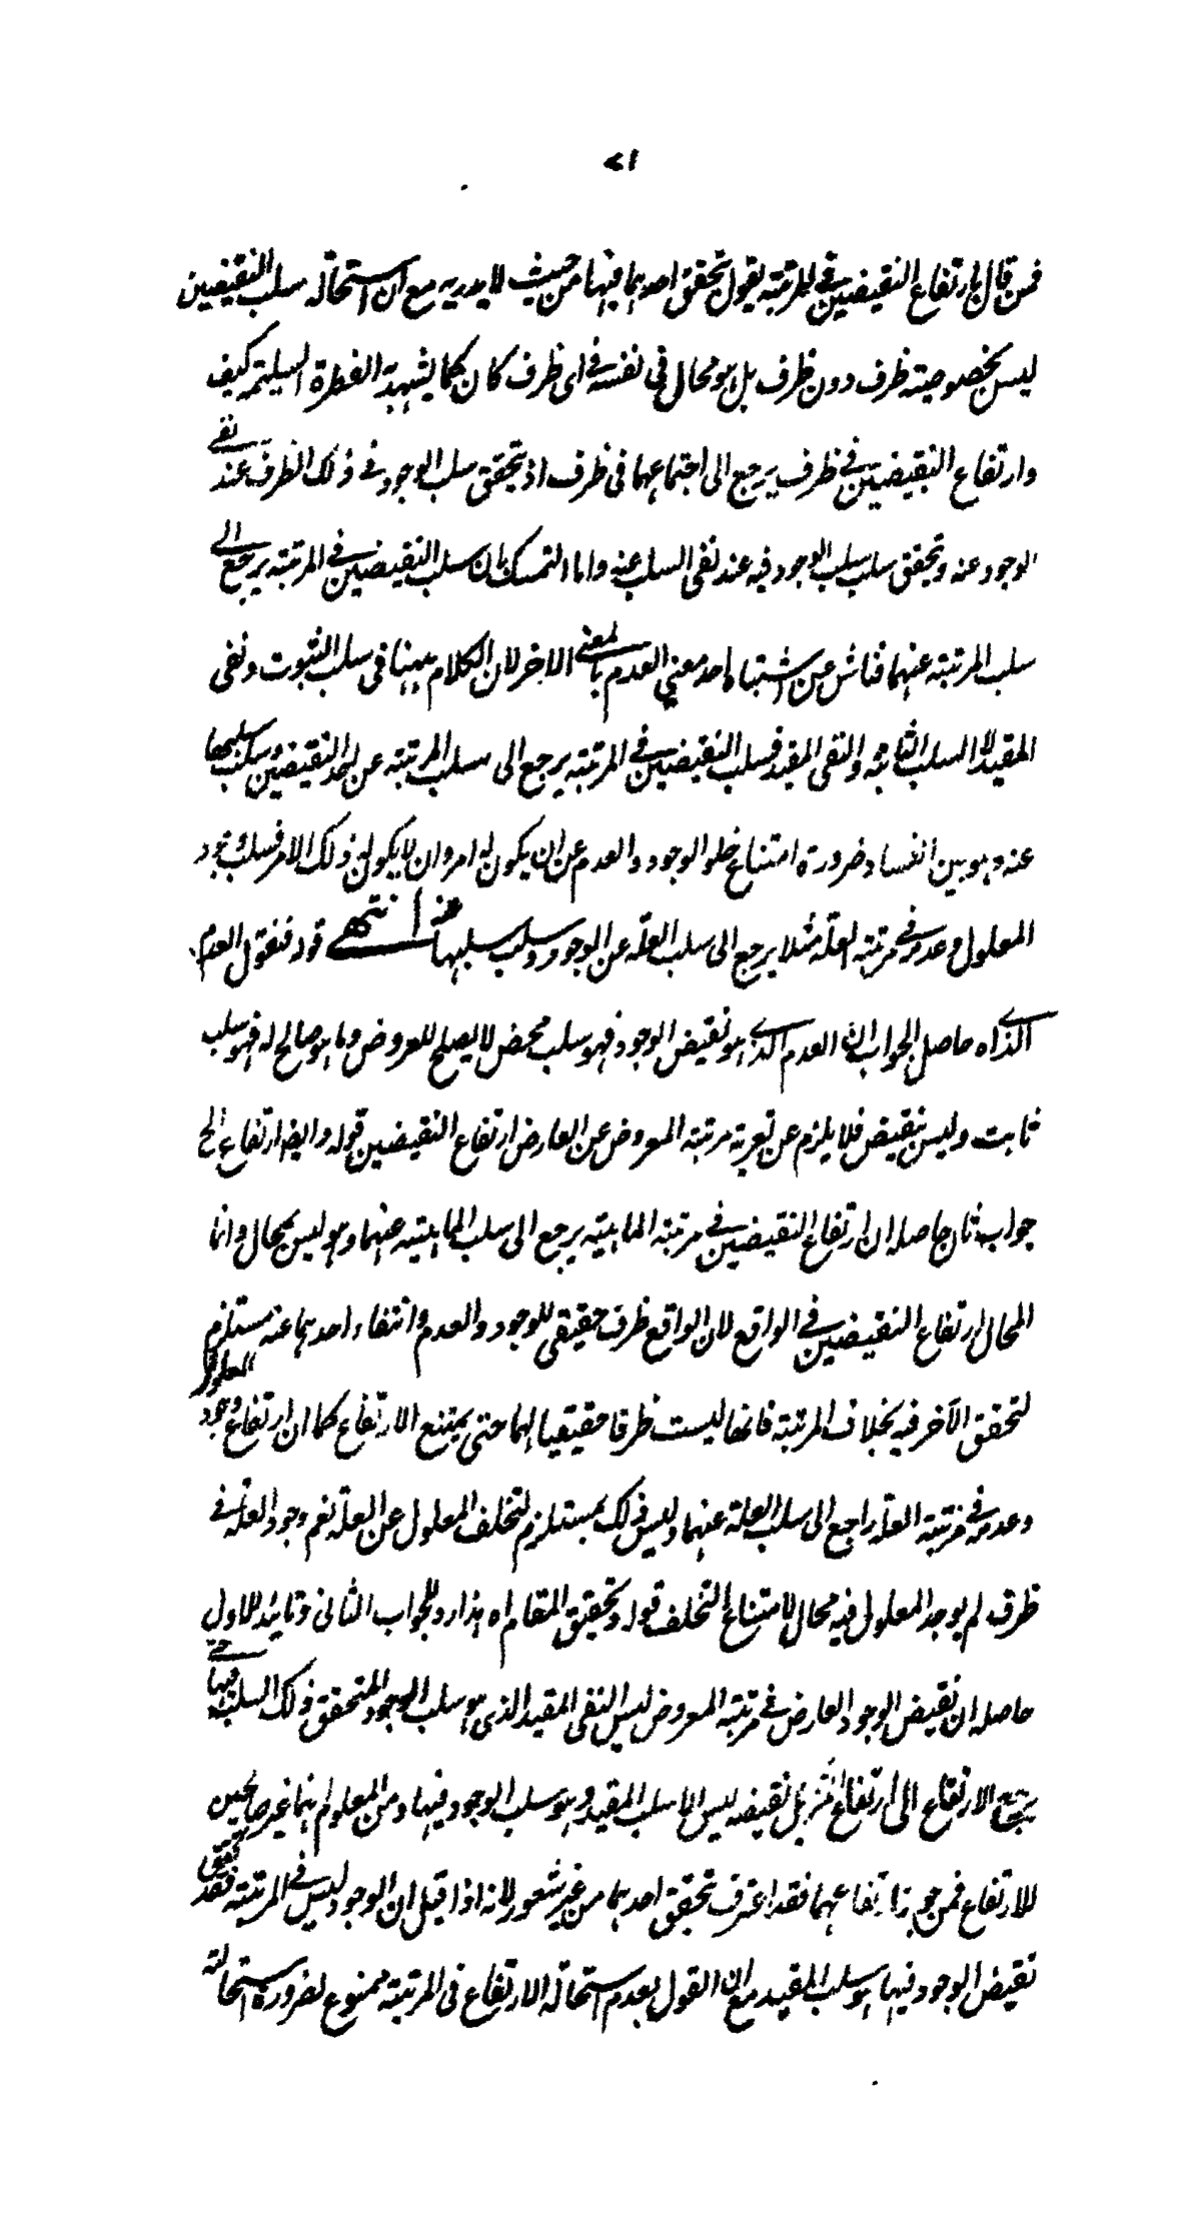 ٧١
فمن قال بارتفاع النقيضين في المرتبة يقول بتحقق احدهما فيها من حيث لا يدريه مع ان استحالة سلب النقيضين
ليس بخصوصية ظرف دون ظرف بل هو محال في نفسه في اى ظرف كان كما يشهد به الفطرة السليمة كيف
وارتفاع النقيضين في ظرف يرجع الى اجتماعهما في ظرف اذ يتحقق سلب الوجود في ذلك الظرف عند نفي
الوجود عنه وتحقق سلب سلب الوجود فيه عند نفى السلب عنه واما التمسك بان سلب النقيضين في المرتبة يرجع الى
سلب المرتبة عنهما فناش عن اشتباه احد معني العدم بالمعنى الاخر لان الكلام ههنا في سلب الثبوت ونفى
المقيد لا السلب الثابت والنفى المقيد فسلب النقيضين في المرتبة يرجع الى سلب المرتبة عن احد النقيضين وسلب سلبها
عنه وهو بين الفساد ضرورة امتناع خلو الوجود والعدم عن ان يكون له امر وان لا يكون له ذلك الامر فسلب وجود
المعلول وعدمه في مرتبة العلة مثلا يرجع الى سلب العلة عن الوجود وسلب سلبها عنه انتهى قوله فنقول العدم
الذى اه حاصل الجواب ان العدم الذى هو نقيض الوجود فهو سلب محض لا يصلح للعروض وما هو صالح له فهو سلب
ثابت وليس بنقيض فلا يلزم عن تعرية مرتبة المعروض عن العارض ارتفاع النقيضين قوله وايضا ارتفاع الخ
جواب ثان حاصله ان ارتفاع النقيضين في مرتبة الماهية يرجع الى سلب الماهية عنهما وهو ليس بمحال وانما
المحال ارتفاع النقيضين في الواقع لان الواقع ظرف حقيقى للوجود والعدم وانتفاء احدهما عنه مستلزم
لتحقق الآخر فيه بخلاف المرتبة فانها ليست ظرفا حقيقيا لهما حتى يمتنع الارتفاع كما ان ارتفاع وجود المعلول
وعدمه في مرتبة العلة راجع الى سلب العلة عنهما وليس ذلك بمستلزم لتخلف المعلول عن العلة نعم وجود العلة في
ظرف لم يوجد المعلول فيه محال لامتناع التخلف قوله وتحقيق المقام اه هذا رد للجواب الثانى وتائيد للاول
حاصله ان نقيض الوجود العارض في مرتبة المعروض ليس النفى المقيد الذى هو سلب الوجود المتحقق ذلك السلب فيها حتى
يرجع الارتفاع الى ارتفاع المرتبة بل نقيضه ليس الا سلب المقيد وهو سلب الوجود فيها ومن المعلوم انهما غير صالحين
للارتفاع فمن جوز ارتفاعهما فقد اعترف بتحقق احدهما من غير شعور لانه اذا قيل ان الوجود ليس في المرتبة فقد تحقق
نقيض الوجود فيها هو سلب المقيد مع ان القول بعدم استحالة الارتفاع في المرتبة ممنوع لضرورة استحالة